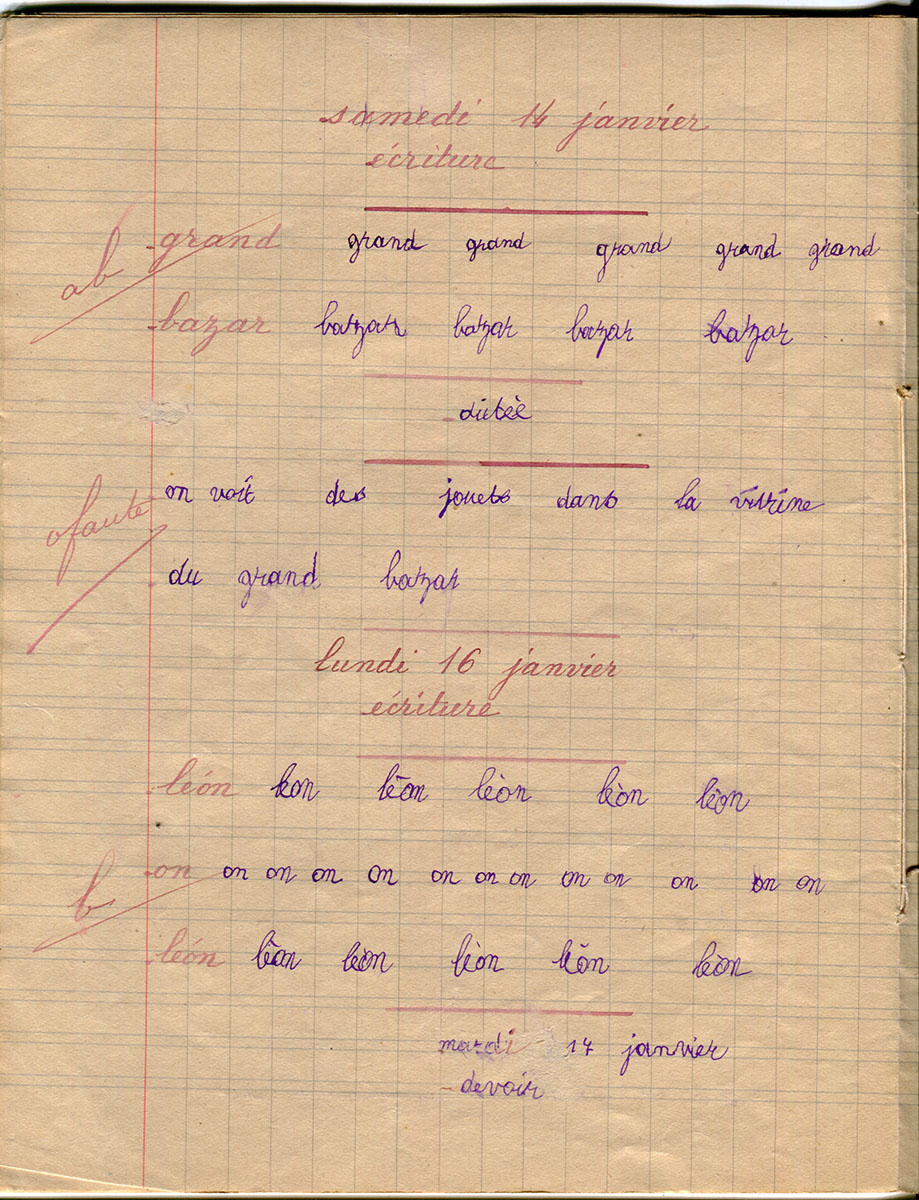 samedi 14 janvier
écriture
ab
grand grand grand grand grand grand
bazar bazar bazar bazar bazar
dictée
0 faute
on voit des jouets dans la vitrine
du grand bazar
lundi 16 janvier
écriture
léon léon léon lèon lèon lèon
b
on on on on on on on on on on on on on
léon léon lèon lèon léon lèon
mardi 17 janvier
devoir